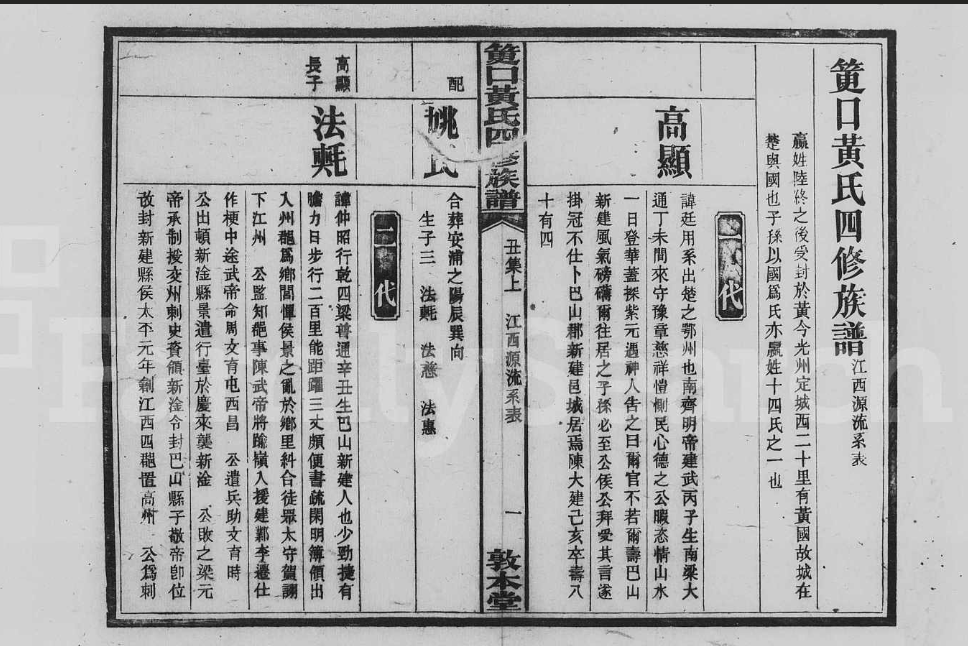 篢口黃氏四修族譜
江西源流系表
嬴姓陸終之後受封於黃今光州定城西二十里有黃國故城在
楚與國也子孫以國爲氏亦嬴姓十四氏之一也
一代
高顯
諱廷用系出楚之鄂州也南齊明帝建武丙子生南梁大
通丁未間來守豫章慈祥愷惻民心德之公暇恣情山水
一日登華蓋探紫元遇神人告之曰爾官不若爾壽巴山
新建風氣磅礴爾往居之子孫必至公侯公拜受其言遂
掛冠不仕卜巴山郡新建邑城居焉陳大建己亥卒壽八
十有四
篢口黃氏四修族譜
丑集上
江西源流系表
一
敦本堂
配
姚氏
合葬安浦之陽辰巽向
生子三 法𣰰 法慈 法惠
二代
高顯
長子
法𣰰
諱仲昭行乾四梁普通辛丑生巴山新建人也少勁捷有
膽力日步行二百里能距躍三丈頗便書疏閑明簿領出
入州郡爲鄉閭憚侯景之亂於鄉里糾合徒眾太守賀詡
下江州 公監知郡事陳武帝將踰嶺入援建鄴李遷仕
作梗中途武帝命周文育屯西昌 公遣兵助文育時
公出頓新淦縣景遣行臺於慶來襲新淦 公敗之梁元
帝承制授交州刺史資領新淦令封巴山縣子敬帝卽位
改封新建縣侯太平元年劃江西四郡置高州 公爲刺